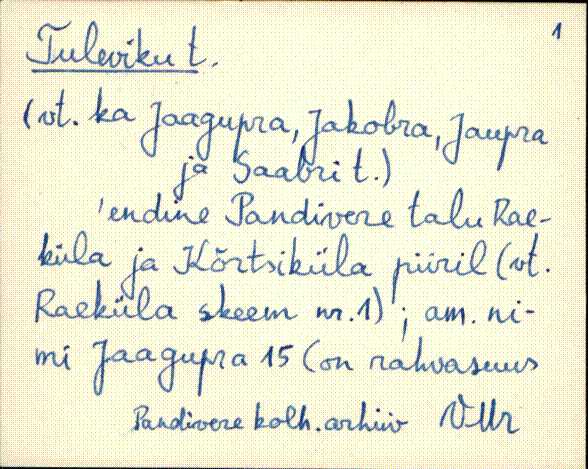 1
Tuleviku t.
(vt. ka Jaagupra, Jakobra, Jaupra
ja Saabri t.)
'endine Pandivere talu Rae-
küla ja Kõrtsiküla piiril (vt.
Raeküla skeem nr. 1) ; am. ni-
mi Jaagupra 15 (on rahvasuus
Pandivere kolh. arhiiv